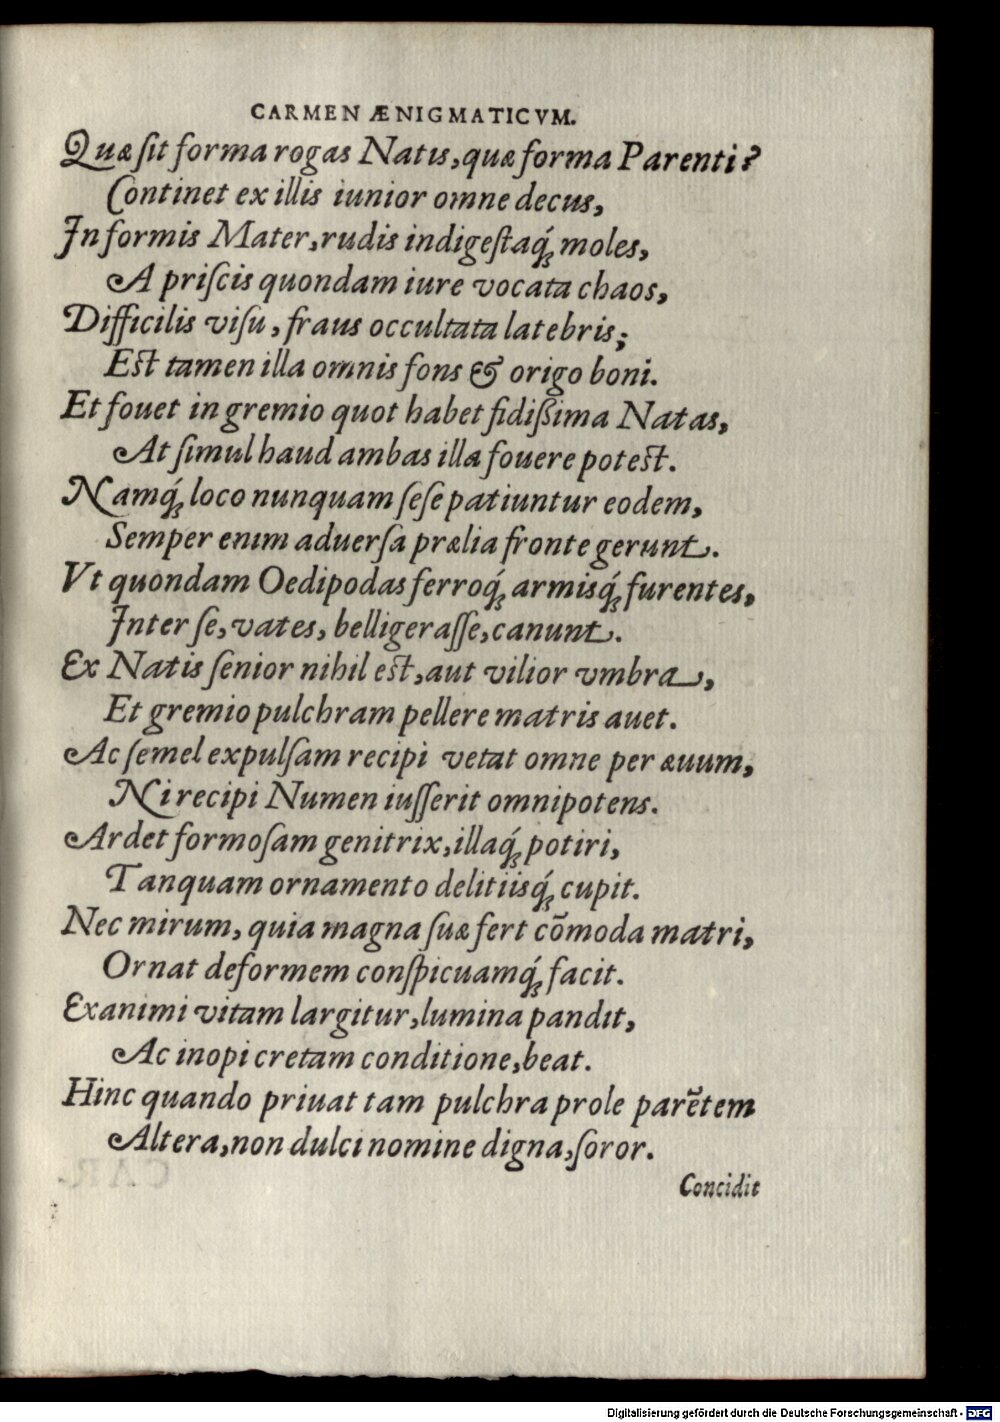 CARMEN ÆNIGMATICVM.
Quæ sit forma rogas Natis, quæ forma Parenti?
Continet ex illis iunior omne decus,
Informis Mater, rudis indigestaq́; moles,
A priscis quondam iure vocata chaos,
Difficilis visu, fraus occultata latebris;
Est tamen illa omnis fons & origo boni.
Et fouet in gremio quot habet fidißima Natas,
At simul haud ambas illa fouere potest.
Namq́; loco nunquam sese patiuntur eodem,
Semper enim aduersa prælia fronte gerunt.
Vt quondam Oedipodas ferroq́; armisq́; furentes,
Inter se, vates, belligerasse, canunt.
Ex Natis senior nihil est, aut vilior vmbra,
Et gremio pulchram pellere matris auet.
Ac semel expulsam recipi vetat omne per æuum,
Ni recipi Numen iusserit omnipotens.
Ardet formosam genitrix, illaq́; potiri,
Tanquam ornamento delitiisq́; cupit.
Nec mirum, quia magna suæ fert cõmoda matri,
Ornat deformem conspicuamq́; facit.
Exanimi vitam largitur, lumina pandit,
Ac inopi cretam conditione, beat.
Hinc quando priuat tam pulchra prole parẽtem
Altera, non dulci nomine digna, soror.
Concidit
Digitalisierung gefördert durch die Deutsche Forschungsgemeinschaft - DFG